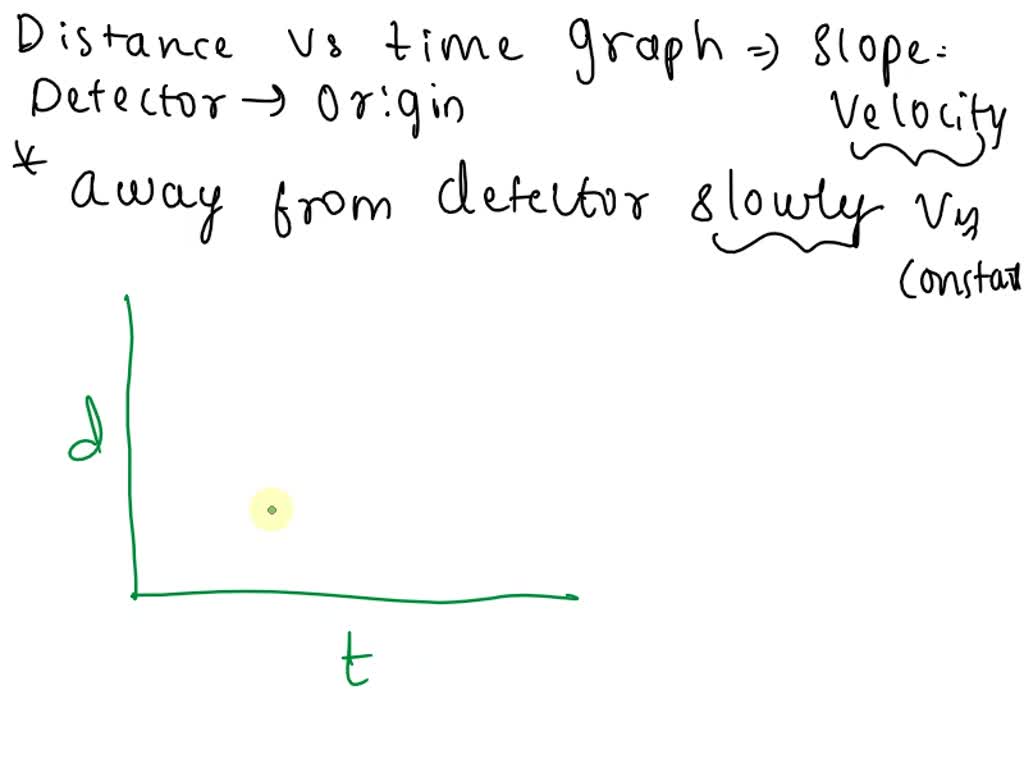 Distance vs time graph => slope =
Detector → Origin velocity
* away from detector slowly v is
constant
d
t